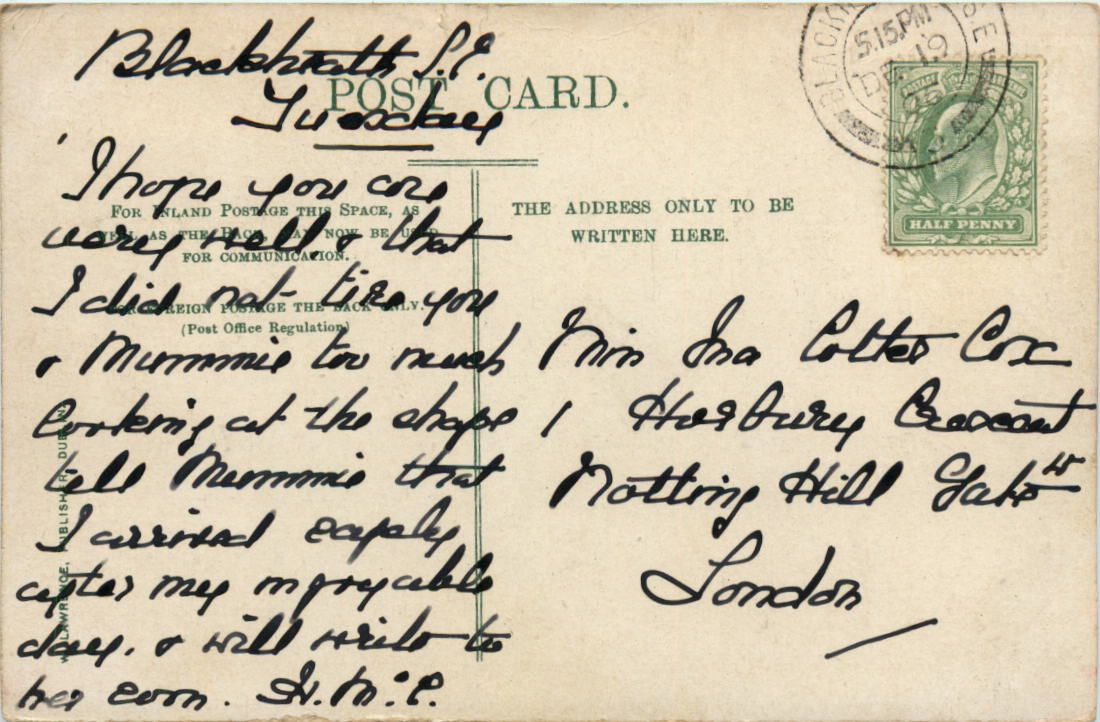 Blackheath S.E.
Tuesday
POST CARD.
FOR INLAND POSTAGE THIS SPACE, AS
WELL AS THE BACK, MAY NOW BE USED
FOR COMMUNICATION.
FOR FOREIGN POSTAGE THE BACK ONLY.
(Post Office Regulation)
I hope you are
very well, & that
I did not tire you
& Mummie too much
looking at the shops
tell Mummie that
I arrived safely
after my
day. & will write to
her soon. H. McC.
LAWRENCE, PUBLISHER, DUBLIN
THE ADDRESS ONLY TO BE
WRITTEN HERE.
Miss Ina Cotter Cox
1 Horbury Crescent
Notting Hill Gate W
London
5.15 PM
DE 19
HALF PENNY